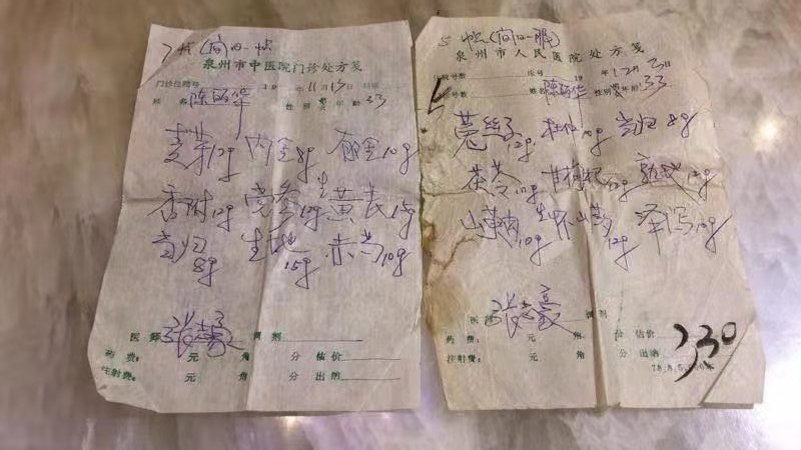 7帖(间日一帖)
泉州市中医院门诊处方笺
门诊住院号 19 年11月15日
姓名 陈丽华 性别 男 年龄 33
麦芽12g 内金8g 郁金10g
香附12g 党参12g 生黄芪15g
当归8g 生地15g 赤芍10g
医师 调剂
药费: 元 角 分 估价
注射费: 元 角 分 出纳
5帖(间日一服)
泉州市人民医院处方笺
住院号数 床号 19 年12月
号数 姓名 陈丽华 性别 年龄 33
菟丝子12g 杜仲10g 当归8g
茯苓10g 甘枸杞12g 12g
山萸肉10g 生怀山药12g 泽泻10g
医师 调剂
药费: 元 角 分 估价
注射费: 元 角 分 出纳
330